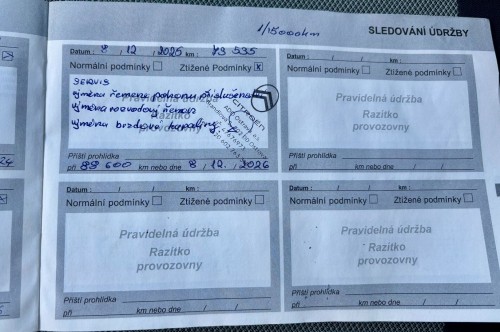 1/15000km
SLEDOVÁNÍ ÚDRŽBY
Datum : 8 / 12 / 2025 km : 73 535
Normální podmínky Ztížené podmínky X
SERVIS
výměna řemene pohonu příslušen.
výměna rozvodový řemen
výměna brzdové kapaliny
Pravidelná údržba
Razítko
provozovny
CITROËN
Příští prohlídka
při 88 600 km nebo dne 8 / 12. / 2026
Datum : / / km :
Normální podmínky Ztížené podmínky
Pravidelná údržba
Razítko
provozovny
Příští prohlídka
při km nebo dne / /
Datum : / / km :
Normální podmínky Ztížené podmínky
Pravidelná údržba
Razítko
provozovny
Příští prohlídka
při km nebo dne / /
Datum : / / km :
Normální podmínky Ztížené podmínky
Pravidelná údržba
Razítko
provozovny
Příští prohlídka
při km nebo dne / /